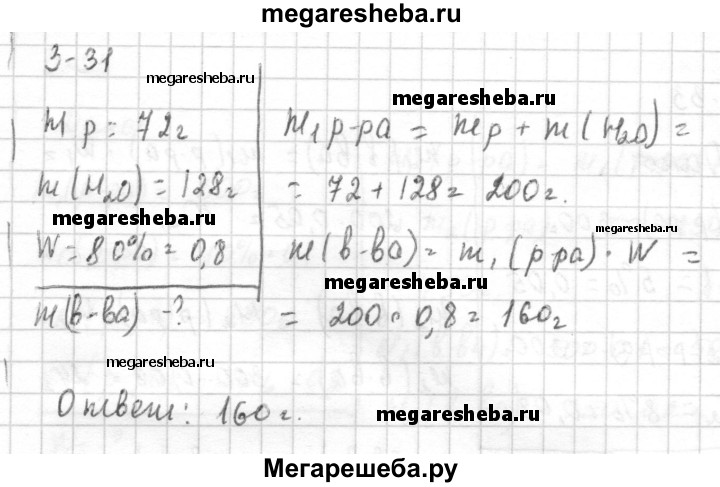 megaresheba.ru
3-31
megaresheba.ru
megaresheba.ru
m р = 72г
m(H2O) = 128г
megaresheba.ru
W = 80% = 0,8
m(в-ва) - ?
m1 р-ра = mр + m(H2O) =
= 72 + 128 = 200г.
megaresheba.ru
m(в-ва) = m1(р-ра) · W =
megaresheba.ru
= 200 · 0,8 = 160г
megaresheba.ru
Ответ: 160г.
megaresheba.ru
Мегарешеба.ру